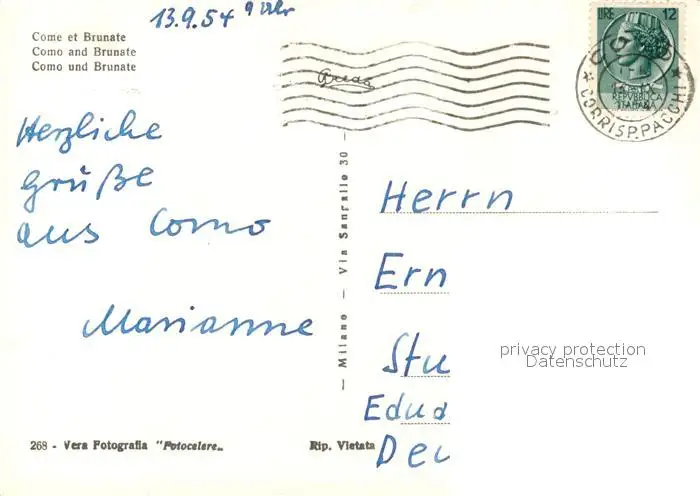 13.9.54 9 Uhr
Come et Brunate
Como and Brunate
Como und Brunate
LIRE 12
REPVBBLICA
ITALIANA
CORRISP. PACCHI
Herzliche
Grüße
aus Como
Marianne
— Milano — Via Sanrallo 30 —
Herrn
Ern
Stu
privacy protection
Datenschutz
Edua
Deu
268 - Vera Fotografia "Fotocelere„
Rip. Vietata